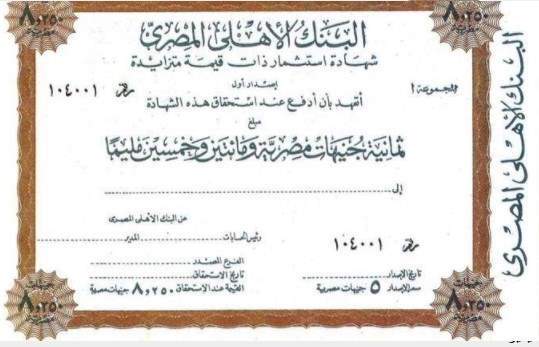 ٨٫٢٥٠
٨٫٢٥٠
البنك الأهلى المصرى
شهادة استثمار ذات قيمة متزايدة
إصدار أول
المجموعة ١
رقم ١٠٤٠٠١
أتعهد بأن أدفع عند استحقاق هذه الشهادة
مبلغ
ثمانية جنيهات مصرية ومائتين وخمسين مليمًا
إلى
عن البنك الأهلى المصرى
رئيس الحسابات
المدير
رقم ١٠٤٠٠١
الفرع المصدر
تاريخ الإصدار
تاريخ الاستحقاق
سعر الإصدار ٥ جنيهات مصرية
القيمة عند الاستحقاق ٨٫٢٥٠ جنيهات مصرية
جنيهات
٨٫٢٥٠
مصرية
جنيهات
٨٫٢٥٠
مصرية
البنك الأهلى المصرى